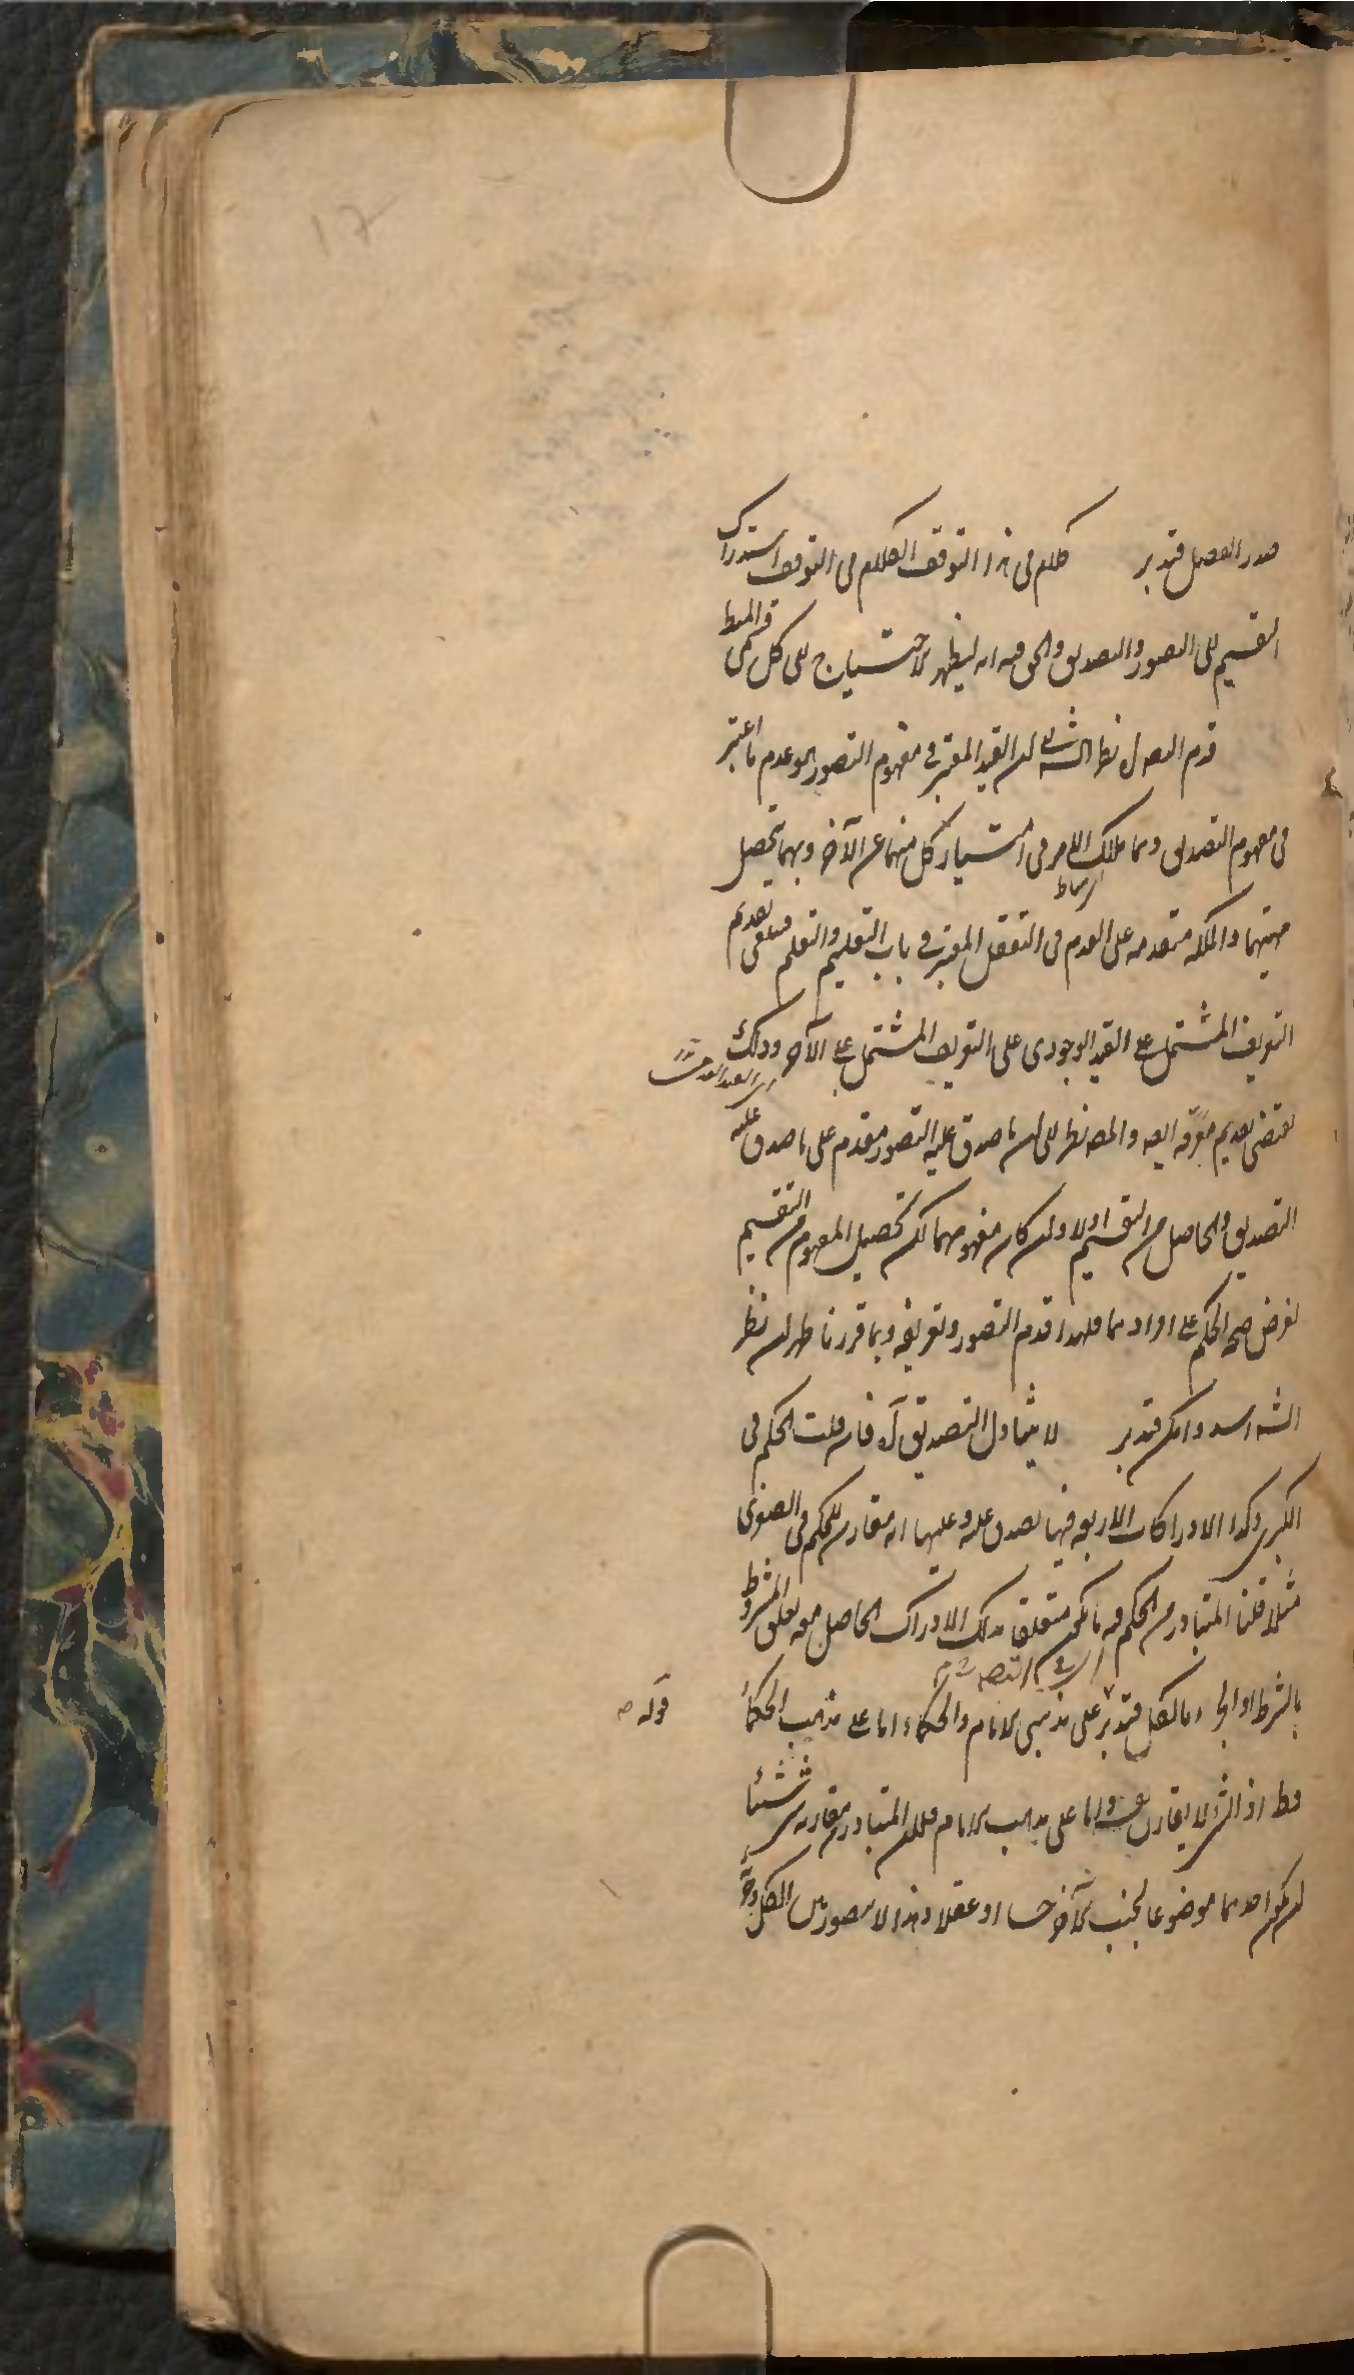 صدر الفصل فتدبر كلام فى هذا التوقف الكلام فى التوقف استدراك
التقسيم الى التصور والتصديق والحق فيه انه ليظهر الاحتياج الى كل قسمى
قدم نظرا الى ان القيد المعتبر فى مفهوم التصور هو عدم ما اعتبر
فى مفهوم التصديق وهما ملاك الامر فى امتياز كل منهما عن الآخر وبهما يتحصل
مهيتهما والملكه متقدمه على العدم فى التعقل المعتبر فى باب التعليم والتعلم فينبغى تقديم
التعريف المشتمل على القيد الوجودى على التعريف المشتمل على الآخر وذلك
يقتضى تقديم معرفه ايضه والمصه نظر الى ان ما صدق عليه التصور مقدم على ما صدق عليه
التصديق والحاصل من التقسيم اولا وان كان مفهومهما لكن تحصيل المفهوم من التقسيم
لغرض صحة الحكم على افرادهما فلهذا قدم التصور وتعريفه وبما قررنا ظهر ان نظر
الشه اسد وامكن فتدبر لا يتناول التصديق آه فان قلت الحكم فى
الكبرى وكذا الادراكات الاربعه فيها يصدق عليه وعليها انه مقارن للحكم فى الصغرى
مثلا قلنا المتبادر من الحكم فيه ما يكون متعلقا بذلك الادراك الحاصل معه تعلق المشروط
بالشرط او الجزء بالكل فتدبر على مذهبى الامام والحكماء اما على مذهب الحكماء
قوله
فظ اذ الشئ لا يقارن نفسه واما على مذهب الامام فلان المتبادر من مقارنه شئ شيئا
ان يكون احدهما موضوعا لجنب الآخر حسا او عقلا وهذا لا يتصور بين الكل وجزئه